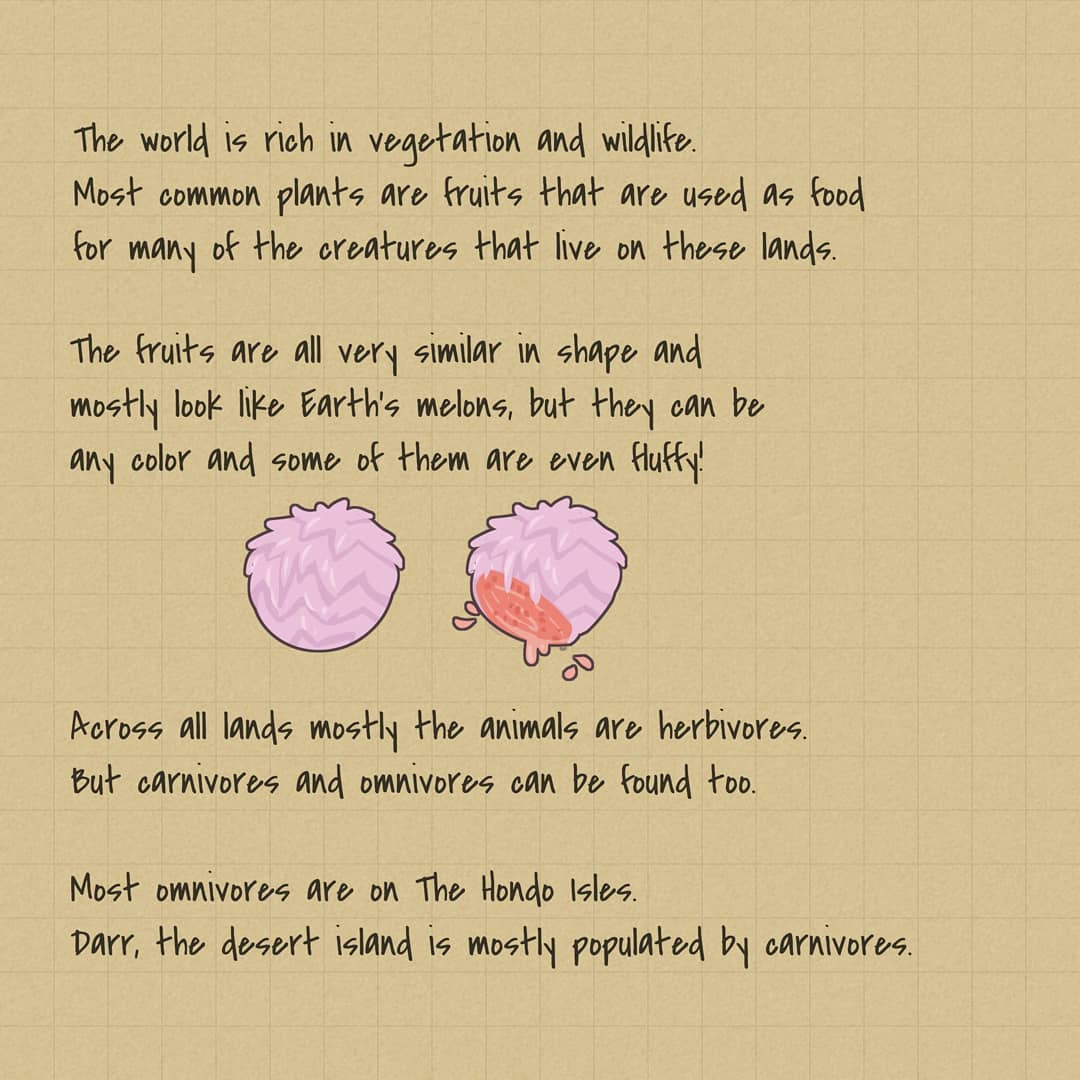 The world is rich in vegetation and wildlife.
Most common plants are fruits that are used as food
for many of the creatures that live on these lands.
The fruits are all very similar in shape and
mostly look like Earth's melons, but they can be
any color and some of them are even fluffy!
Across all lands mostly the animals are herbivores.
But carnivores and omnivores can be found too.
Most omnivores are on The Hondo Isles.
Darr, the desert island is mostly populated by carnivores.